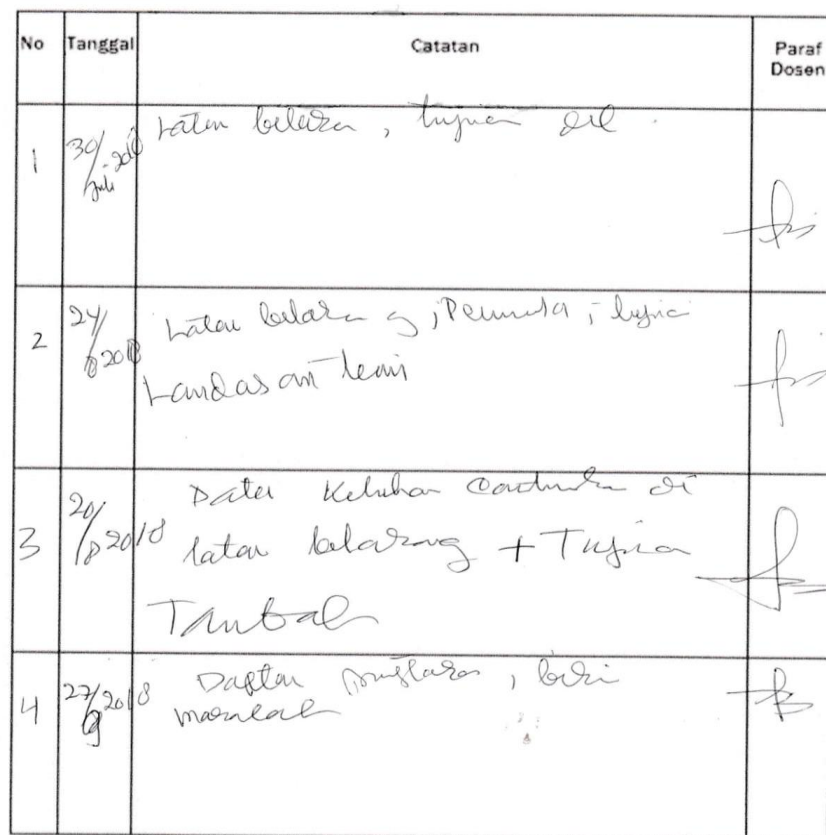 No Tanggal Catatan Paraf Dosen
1 30/Juli 2018 Latar belakang, tujuan dll.
2 24/8 2018 Latar belakang, , tujuan
Landasan teori
3 20/8 2018 Data Keluhan di
latar belakang + Tujuan
Tambah
4 27/9 2018 Daftar pustaka,
masalah